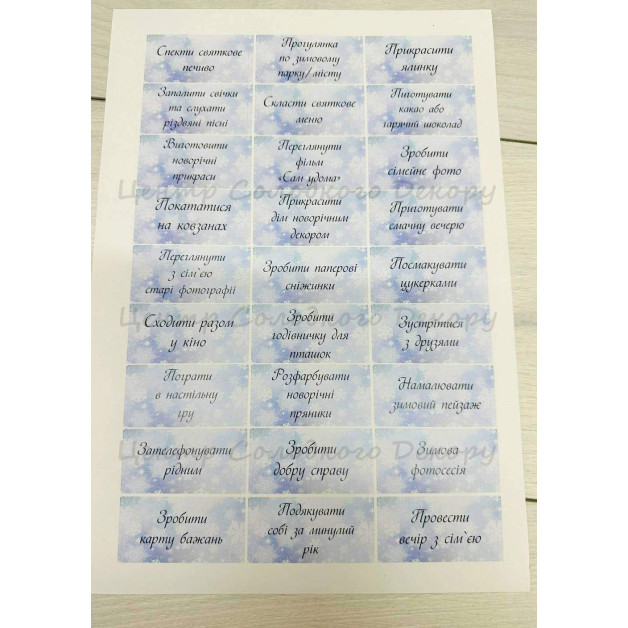 Спекти святкове
печиво
Прогулянка
по зимовому
парку/місту
Прикрасити
ялинку
Запалити свічки
та слухати
різдвяні пісні
Скласти святкове
меню
Пиготувати
какао або
гарячий шоколад
Виготовити
новорічні
прикраси
Переглянути
фільм
«Сам удома»
Зробити
сімейне фото
Покататися
на ковзанах
Прикрасити
дім новорічним
декором
Приготувати
смачну вечерю
Переглянути
з сім`єю
старі фотографії
Зробити паперові
сніжинки
Посмакувати
цукерками
Сходити разом
у кіно
Зробити
годівничку для
пташок
Зустрітися
з друзями
Пограти
в настільну
гру
Розфарбувати
новорічні
пряники
Намалювати
зимовий пейзаж
Зателефонувати
рідним
Зробити
добру справу
Зимова
фотосесія
Зробити
карту бажань
Подякувати
собі за минулий
рік
Провести
вечір з сім`єю
Центр Солодкого Декору
Центр Солодкого Декору
Центр Солодкого Декору